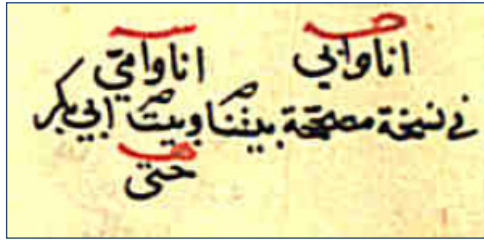 انا وابي انا وامي
في نسخة مصححة بيننا وبيت ابي بكر
حتى